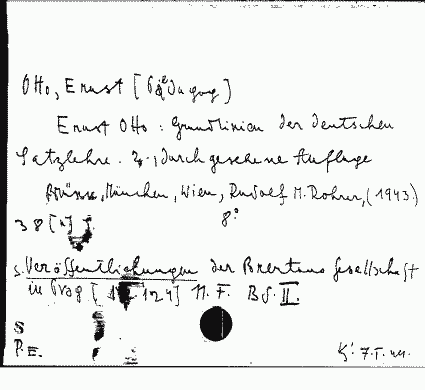 Otto, Ernst [Pädagog]
Ernst Otto: Grundlinien der deutschen
Satzlehre. 2., durchgesehene Auflage
Brünn, München, Wien, Rudolf M. Rohrer, (1943)
38 [1] S. 8°
S. Veröffentlichungen der Brentano Gesellschaft
in Prag [ 124] N. F. Bd. II.
S
P.E.